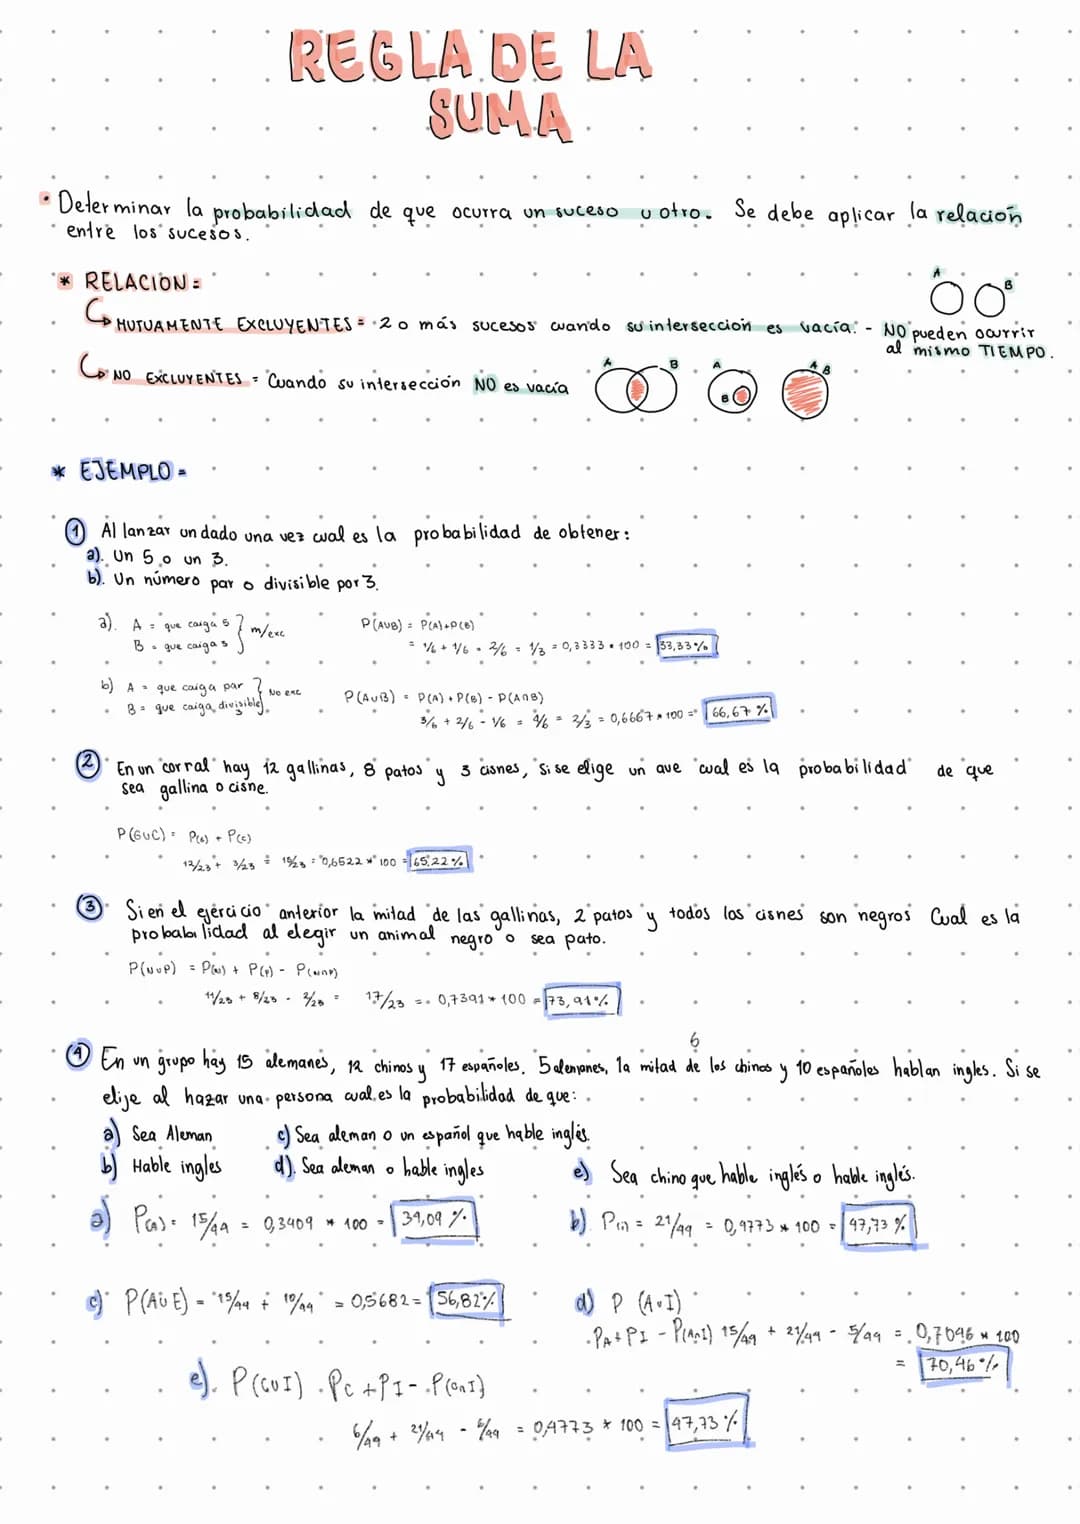 REGLA DE LA
SUMA
• Determinar la probabilidad de que ocurra un suceso u otro. Se debe aplicar la relación
entre los sucesos.
* RELACIÓN =
A B
↳ MUTUAMENTE EXCLUYENTES = 2 o más sucesos cuando su intersección es vacía. - NO pueden ocurrir
al mismo TIEMPO.
↳ NO EXCLUYENTES = Cuando su intersección NO es vacía
A B A B A B
* EJEMPLO =
1 Al lanzar un dado una vez cual es la probabilidad de obtener:
a). Un 5 o un 3.
b). Un número par o divisible por 3.
a). A = que caiga 5
B = que caiga 3 } m/exc
P(AUB) = P(A)+P(B)
= 1/6 + 1/6 = 2/6 = 1/3 = 0,3333 * 100 = 33,33%
b) A = que caiga par
B = que caiga divisible } No exc
P(AUB) = P(A) + P(B) - P(A∩B)
3/6 + 2/6 - 1/6 = 4/6 = 2/3 = 0,6667 * 100 = 66,67 %
2 En un corral hay 12 gallinas, 8 patos y 3 cisnes, si se elige un ave cual es la probabilidad de que
sea gallina o cisne.
P(GUC) = P(G) + P(C)
12/23 + 3/23 = 15/23 = 0,6522 * 100 = 65,22%
3 Si en el ejercicio anterior la mitad de las gallinas, 2 patos y todos los cisnes son negros Cual es la
probabilidad al elegir un animal negro o sea pato.
P(NUP) = P(N) + P(P) - P(N∩P)
11/23 + 8/23 - 2/23 = 17/23 = 0,7391 * 100 = 73,91%
6
4 En un grupo hay 15 alemanes, 12 chinos y 17 españoles. 5 alemanes, la mitad de los chinos y 10 españoles hablan ingles. Si se
elije al hazar una persona cual es la probabilidad de que:
a) Sea Aleman
c) Sea aleman o un español que hable inglés.
b) Hable ingles
d). Sea aleman o hable ingles
e) Sea chino que hable inglés o hable inglés.
a) P(A) = 15/44 = 0,3409 * 100 = 34,09 %
b). P(I) = 21/44 = 0,4773 * 100 = 47,73 %
c) P(AUE) = 15/44 + 10/44 = 0,5682 = 56,82%
d) P (AUI)
PA + PI - P(A∩I) 15/44 + 21/44 - 5/44 = 0,7046 * 100
= 70,46%
e). P(CUI) PC + PI - P(C∩I)
6/44 + 21/44 - 6/44 = 0,4773 * 100 = 47,73 %